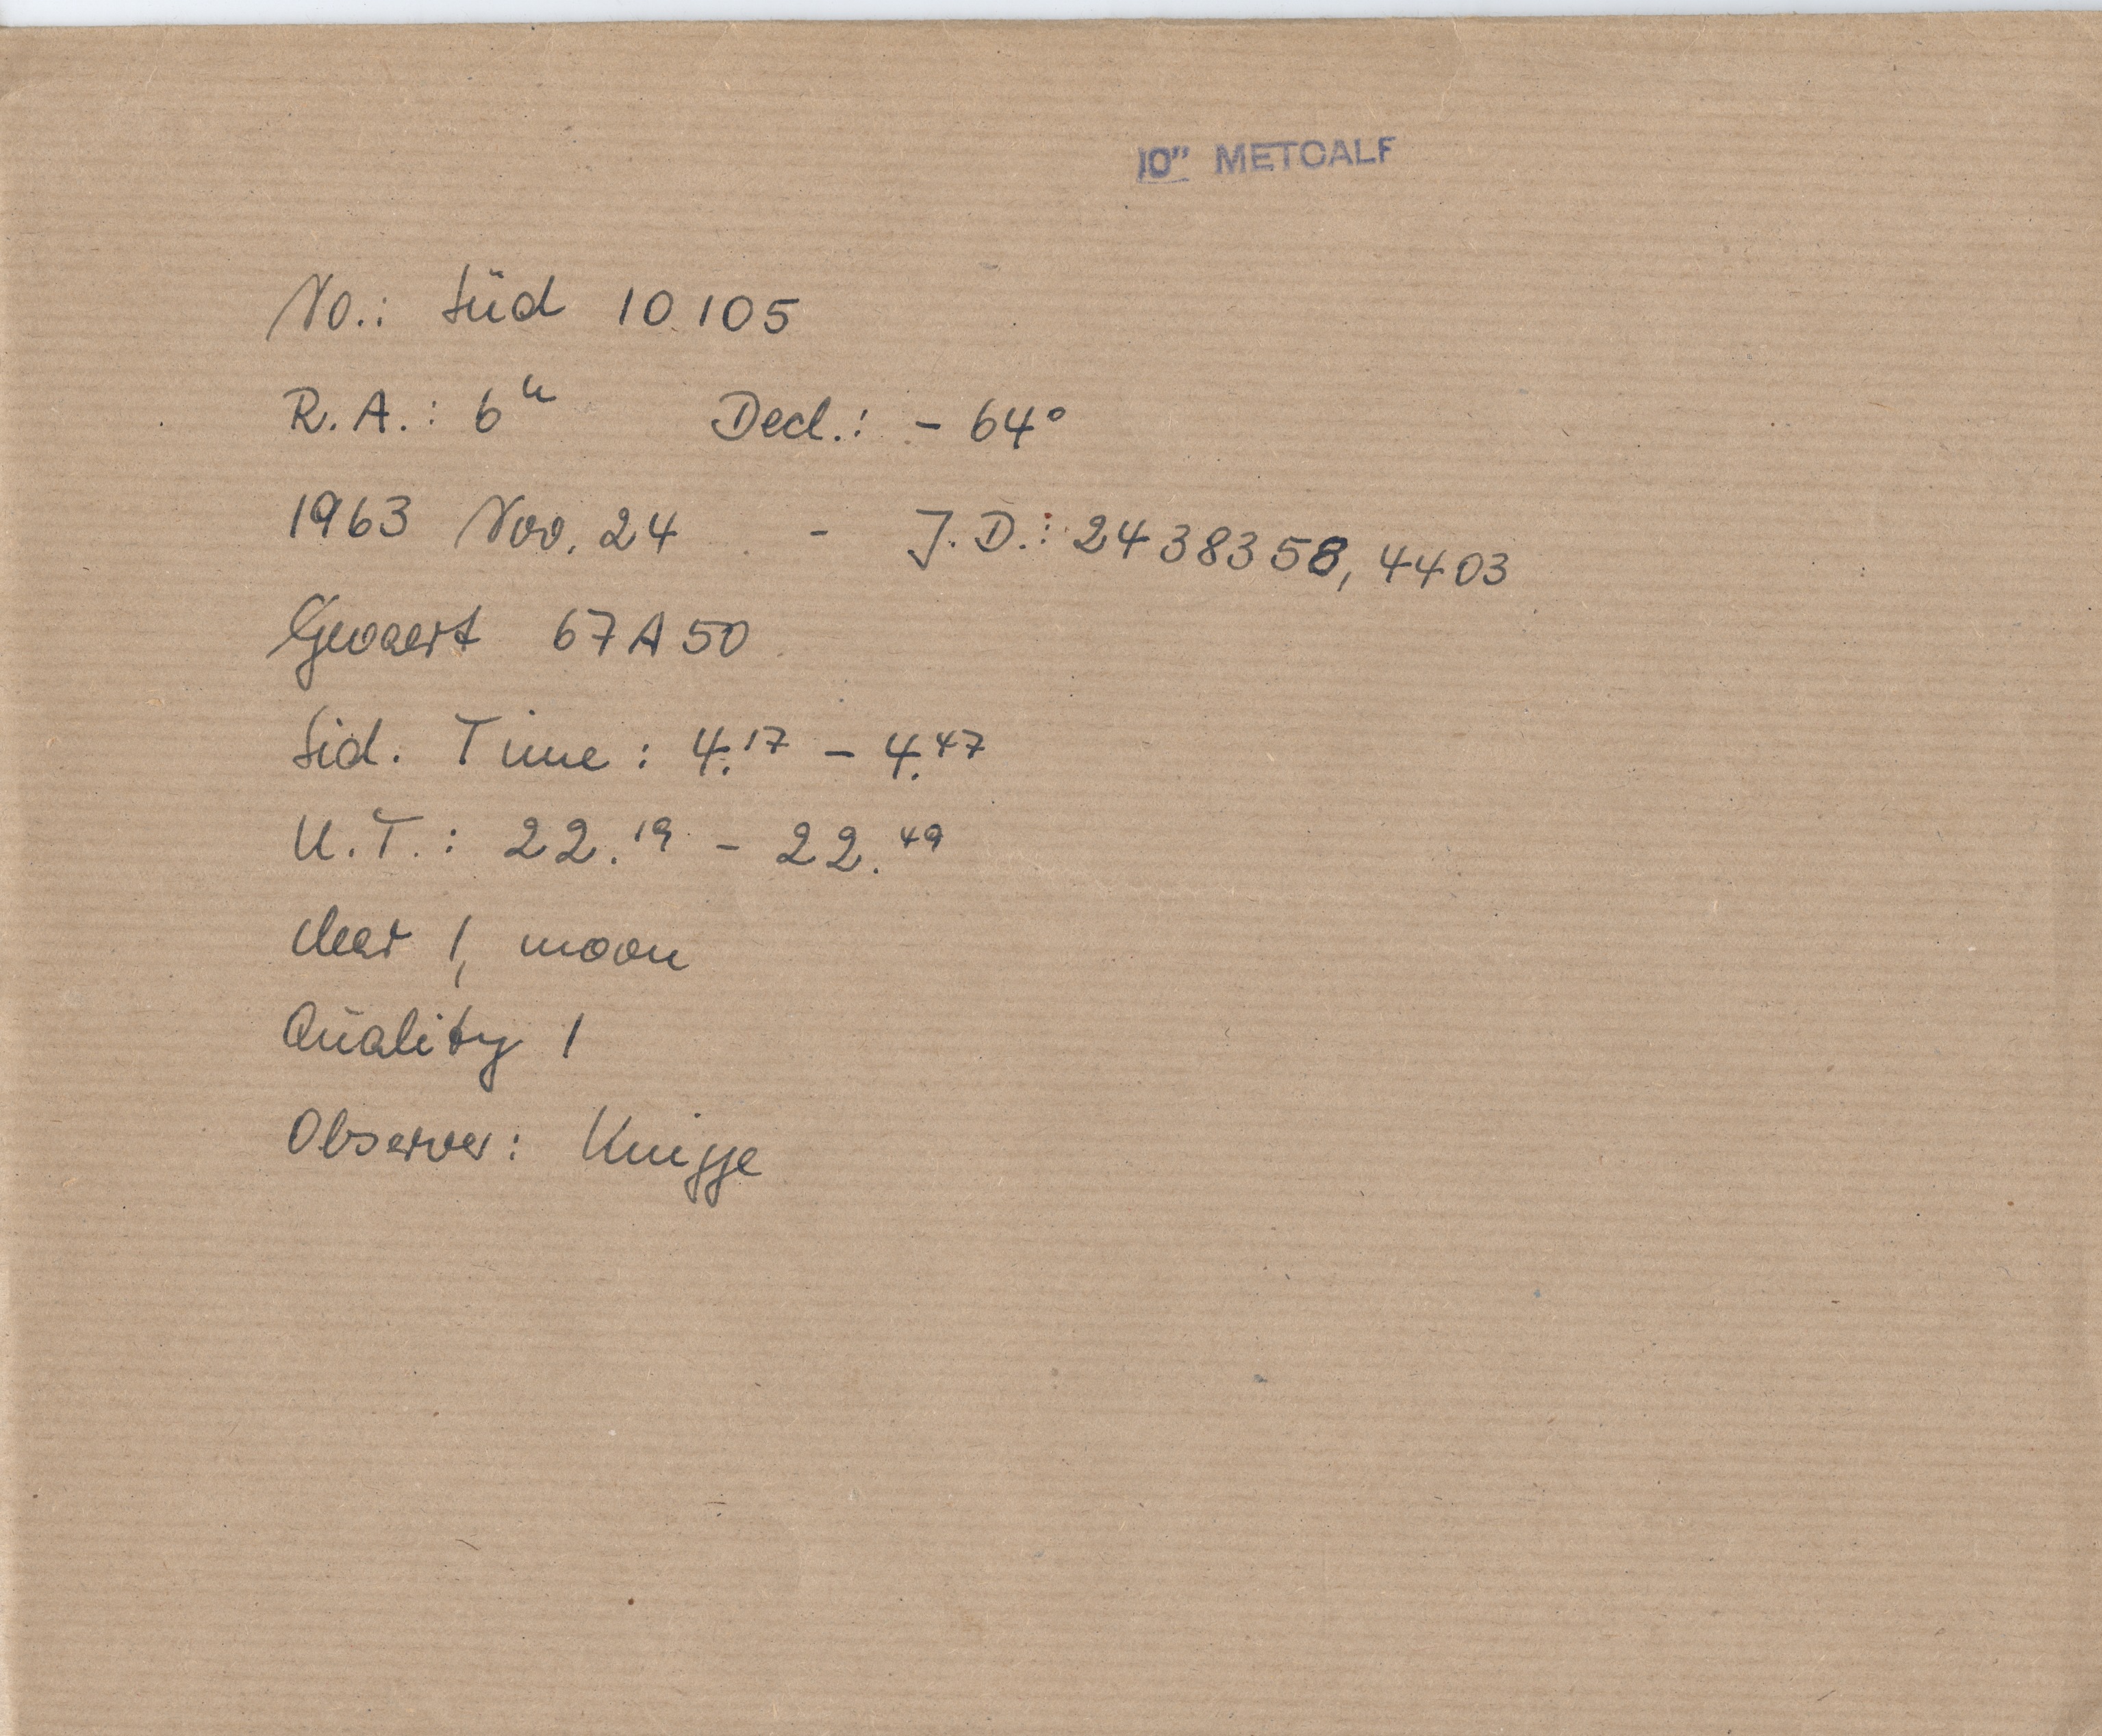 10" METCALF
No.: Süd 10 105
R.A.: 6h Decl.: - 64°
1963 Nov. 24 - J.D.: 2438358,4403
Gevaert 67A50
Sid. Time: 4.17 - 4.47
U.T.: 22.19 - 22.49
clear 1, moon
Quality 1
Observer: Knigge